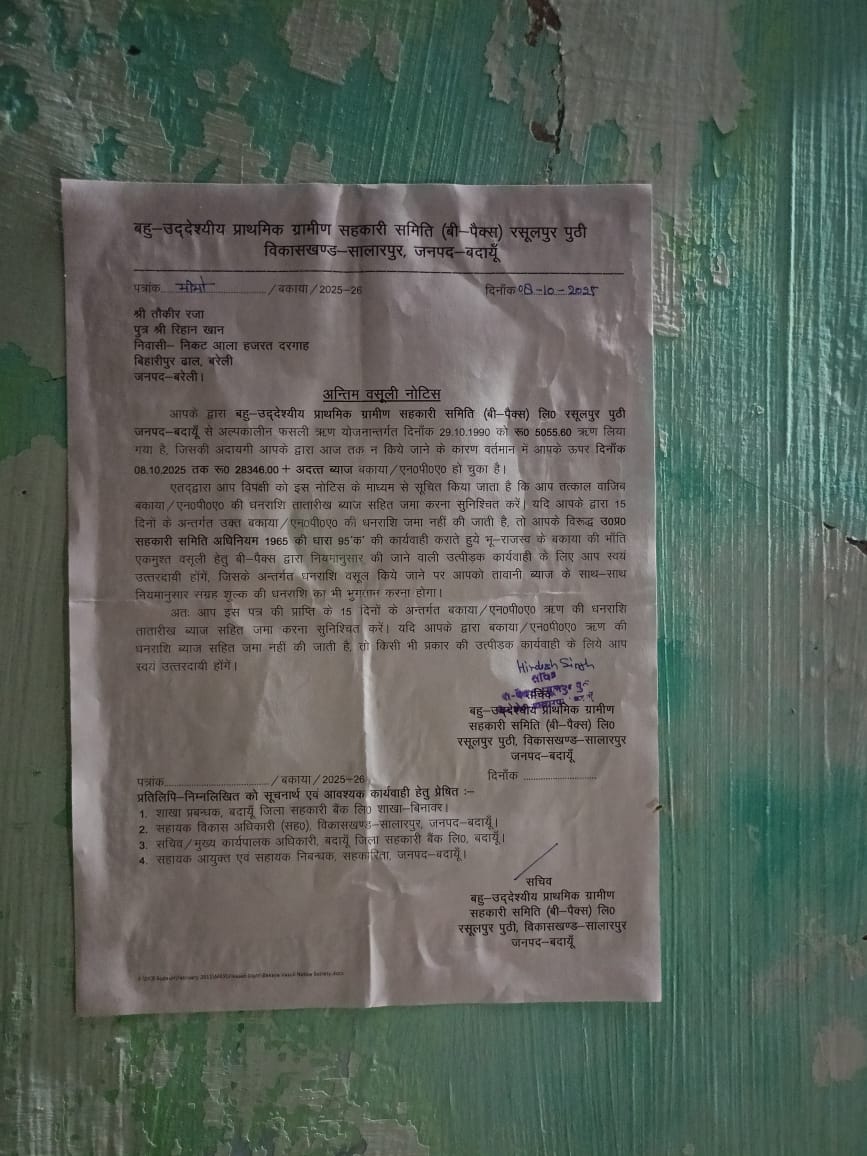 बहु–उद्देश्यीय प्राथमिक ग्रामीण सहकारी समिति (बी–पैक्स) रसूलपुर पुठी
विकासखण्ड–सालारपुर, जनपद–बदायूँ
पत्रांक मीमो / बकाया / 2025–26 दिनाँक 08-10-2025
श्री तौकीर रजा
पुत्र श्री रिहान खान
निवासी– निकट आला हजरत दरगाह
बिहारीपुर ढाल, बरेली
जनपद–बरेली।
अन्तिम वसूली नोटिस
आपके द्वारा बहु–उद्देश्यीय प्राथमिक ग्रामीण सहकारी समिति (बी–पैक्स) लि0 रसूलपुर पुठी
जनपद–बदायूँ से अल्पकालीन फसली ऋण योजनान्तर्गत दिनाँक 29.10.1990 को रू0 5055.60 ऋण लिया
गया है, जिसकी अदायगी आपके द्वारा आज तक न किये जाने के कारण वर्तमान में आपके ऊपर दिनाँक
08.10.2025 तक रू0 28346.00 + अदत्त ब्याज बकाया/एन0पी0ए0 हो चुका है।
एतद्द्वारा आप विपक्षी को इस नोटिस के माध्यम से सूचित किया जाता है कि आप तत्काल वाजिब
बकाया/एन0पी0ए0 की धनराशि तातारीख ब्याज सहित जमा करना सुनिश्चित करें। यदि आपके द्वारा 15
दिनों के अन्तर्गत उक्त बकाया/एन0पी0ए0 की धनराशि जमा नहीं की जाती है, तो आपके विरूद्ध उ0प्र0
सहकारी समिति अधिनियम 1965 की धारा 95'क' की कार्यवाही कराते हुये भू–राजस्व के बकाया की भाँति
एकमुश्त वसूली हेतु बी–पैक्स द्वारा नियमानुसार की जाने वाली उत्पीड़क कार्यवाही के लिए आप स्वयं
उत्तरदायी होंगें, जिसके अन्तर्गत धनराशि वसूल किये जाने पर आपको तावानी ब्याज के साथ–साथ
नियमानुसार संग्रह शुल्क की धनराशि का भी भुगतान करना होगा।
अतः आप इस पत्र की प्राप्ति के 15 दिनों के अन्तर्गत बकाया/एन0पी0ए0 ऋण की धनराशि
तातारीख ब्याज सहित जमा करना सुनिश्चित करें। यदि आपके द्वारा बकाया/एन0पी0ए0 ऋण की
धनराशि ब्याज सहित जमा नहीं की जाती है, तो किसी भी प्रकार की उत्पीड़क कार्यवाही के लिये आप
स्वयं उत्तरदायी होंगें।
Hirdesh Singh
सचिव
सचिव
बहु–उद्देश्यीय प्राथमिक ग्रामीण
सहकारी समिति (बी–पैक्स) लि0
रसूलपुर पुठी, विकासखण्ड–सालारपुर
जनपद–बदायूँ
पत्रांक / बकाया / 2025–26 दिनाँक
प्रतिलिपि–निम्नलिखित को सूचनार्थ एवं आवश्यक कार्यवाही हेतु प्रेषित :–
1. शाखा प्रबन्धक, बदायूँ जिला सहकारी बैंक लि0 शाखा–बिनावर।
2. सहायक विकास अधिकारी (सह0), विकासखण्ड–सालारपुर, जनपद–बदायूँ।
3. सचिव/मुख्य कार्यपालक अधिकारी, बदायूँ जिला सहकारी बैंक लि0, बदायूँ।
4. सहायक आयुक्त एवं सहायक निबन्धक, सहकारिता, जनपद–बदायूँ।
सचिव
बहु–उद्देश्यीय प्राथमिक ग्रामीण
सहकारी समिति (बी–पैक्स) लि0
रसूलपुर पुठी, विकासखण्ड–सालारपुर
जनपद–बदायूँ